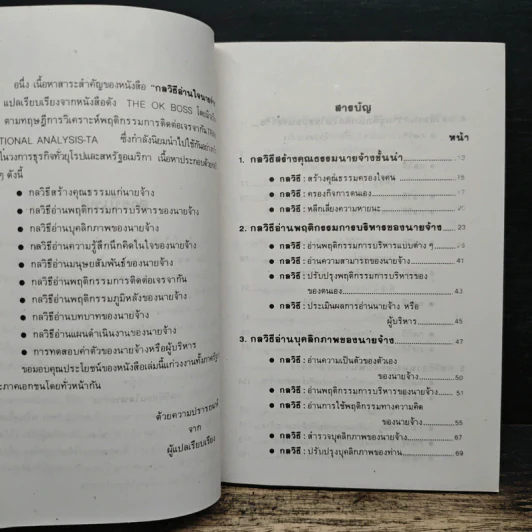 อนึ่ง เนื้อหาสาระสำคัญของหนังสือ "กลวิธีอ่านใจนายจ้าง
แปลเรียบเรียงจากหนังสือดัง THE OK BOSS
ตามทฤษฎีการวิเคราะห์พฤติกรรมการติดต่อเจรจากัน
TIONAL ANALYSIS-TA ซึ่งกำลังนิยมนำไปใช้กันอย่าง
ในวงการธุรกิจทั่วยุโรปและสหรัฐอเมริกา เนื้อหาประกอบด้วย
ๆ ดังนี้
● กลวิธีสร้างคุณธรรมแก่นายจ้าง
● กลวิธีอ่านพฤติกรรมการบริหารของนายจ้าง
● กลวิธีอ่านบุคลิกภาพของนายจ้าง
● กลวิธีอ่านความรู้สึกนึกคิดในใจของนายจ้าง
● กลวิธีอ่านมนุษยสัมพันธ์ของนายจ้าง
● กลวิธีอ่านพฤติกรรมการติดต่อเจรจากัน
● กลวิธีอ่านพฤติกรรมภูมิหลังของนายจ้าง
● กลวิธีอ่านบทบาทของนายจ้าง
● กลวิธีอ่านแผนดำเนินงานของนายจ้าง
● การทดสอบค่าตัวของนายจ้างหรือผู้บริหาร
ขอมอบคุณประโยชน์ของหนังสือเล่มนี้แก่วงงานทั้งภาครัฐ
ะภาคเอกชนโดยทั่วหน้ากัน
ด้วยความปรารถนาดี
จาก
ผู้แปลเรียบเรียง
สารบัญ
หน้า
1. กลวิธีสร้างคุณธรรมนายจ้างชั้นนำ
● กลวิธี : สร้างคุณธรรมครองใจคน
● กลวิธี : ครองกิจการตนเอง
● กลวิธี : หลีกเลี่ยงความหายนะ
2. กลวิธีอ่านพฤติกรรมการบริหารของนายจ้าง 23
● กลวิธี : อ่านพฤติกรรมการบริหารแบบต่าง ๆ
● กลวิธี : อ่านความสามารถของนายจ้าง 41
● กลวิธี : ปรับปรุงพฤติกรรมการบริหารของ
ของตนเอง 43
● กลวิธี : ประเมินผลการอ่านนายจ้าง หรือ
ผู้บริหาร 45
3. กลวิธีอ่านบุคลิกภาพของนายจ้าง 47
● กลวิธี : อ่านความเป็นตัวของตัวเอง
ของนายจ้าง 50
● กลวิธี : อ่านพฤติกรรมการบริหารของนายจ้าง 51
● กลวิธี : อ่านการใช้พฤติกรรมทางความคิด
ของนายจ้าง 55
● กลวิธี : สำรวจบุคลิกภาพของนายจ้าง 67
● กลวิธี : ปรับปรุงบุคลิกภาพของท่าน 69